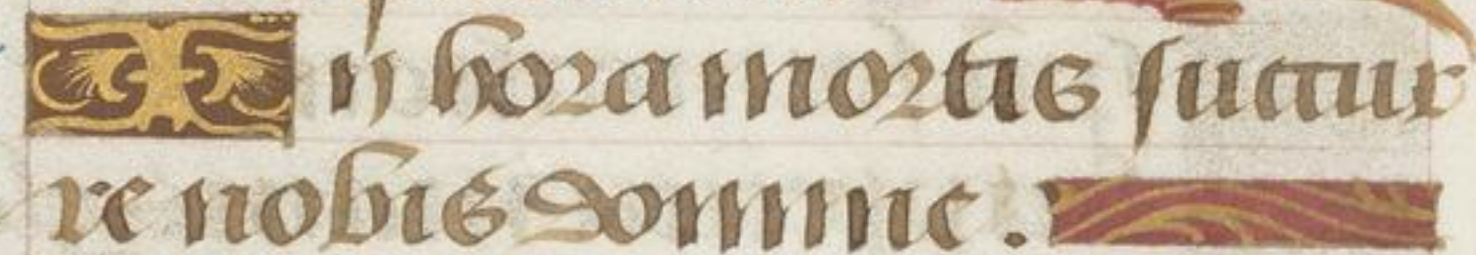 In hora mortis succur
re nobis domine.